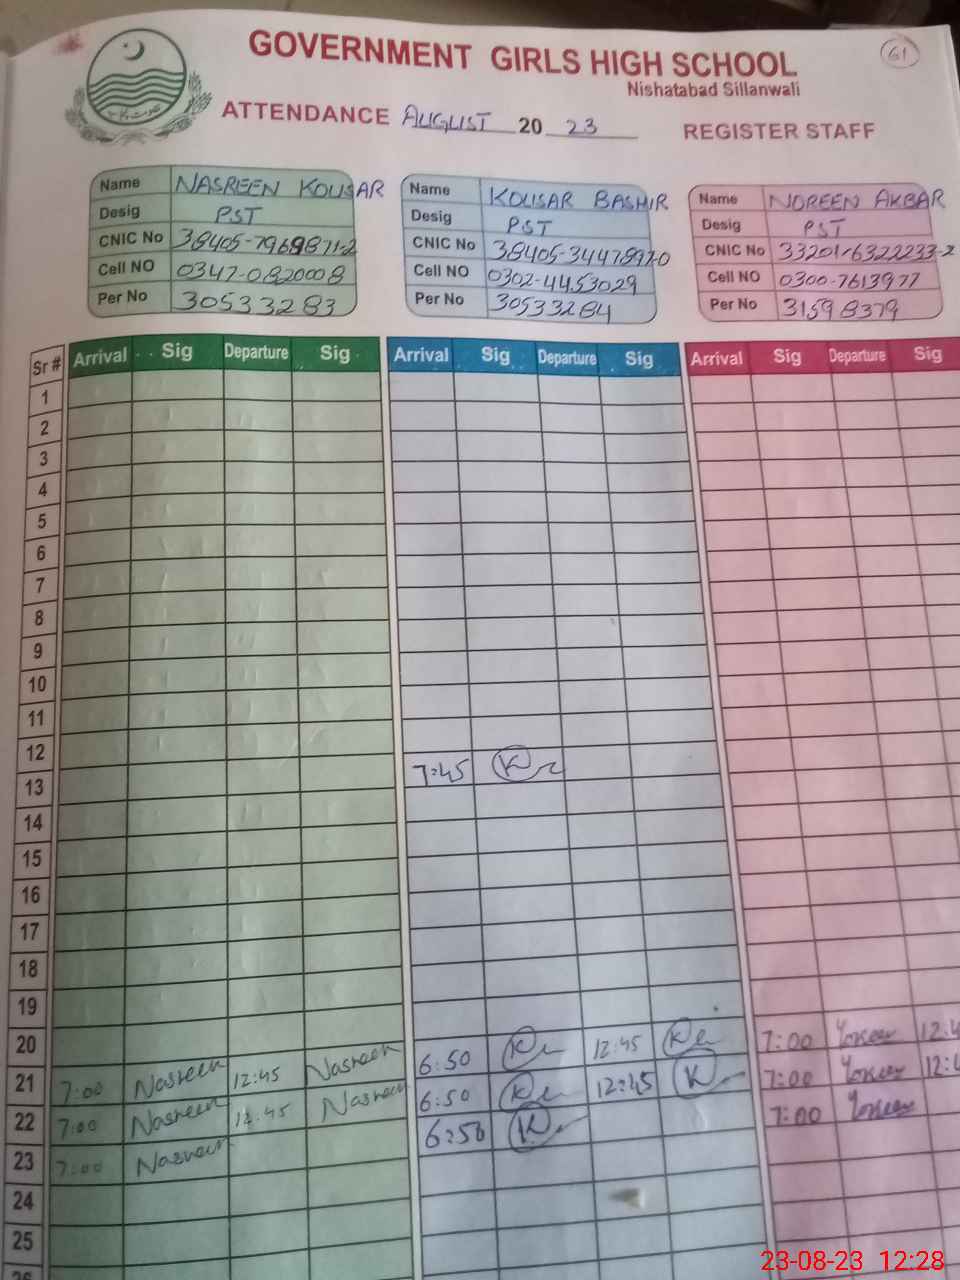 GOVERNMENT GIRLS HIGH SCHOOL
61
Nishatabad Sillanwali
ATTENDANCE AUGUST 20 23 REGISTER STAFF
Name NASREEN KOUSAR
Desig PST
CNIC No 38405-7969871-2
Cell NO 0347-0820008
Per No 30533283
Name KOUSAR BASHIR
Desig PST
CNIC No 38405-3447897-0
Cell NO 0302-4453029
Per No 30533284
Name NOREEN AKBAR
Desig PST
CNIC No 33201-6322233-2
Cell NO 0300-7613977
Per No 31598379
Sr # Arrival Sig Departure Sig Arrival Sig Departure Sig Arrival Sig Departure Sig
1
2
3
4
5
6
7
8
9
10
11
12
13 7:45
14
15
16
17
18
19
20
21 7:00 Nasreen 12:45 Nasreen 6:50 12:45 7:00 12:4
22 7:00 Nasreen 12:45 Nasreen 6:50 12:45 7:00 12:4
23 7:00 Nasreen 6:50 7:00
24
25
26
23-08-23 12:28